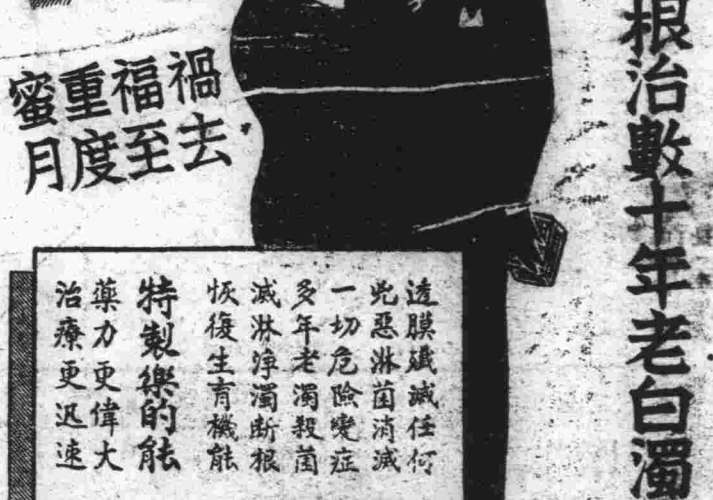 根治數十年老白濁
禍去
福至
重度
蜜月
透膜殲滅任何
兇惡淋菌消滅
一切危險變症
多年老濁殺菌
滅淋淨濁斷根
恢復生育機能
特製藥的能
藥力更偉大
治療更迅速